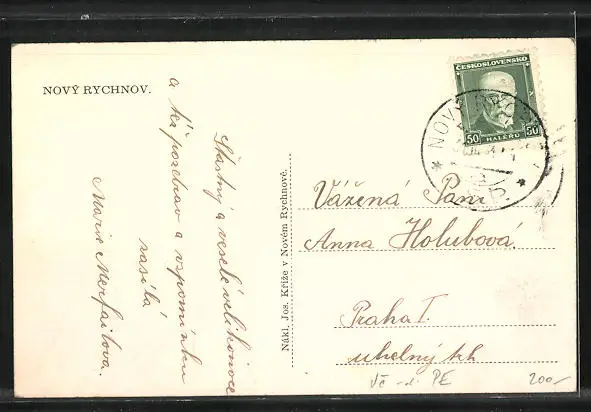 NOVÝ RYCHNOV.
Šťastný a veselé velikonoce
a též pozdrav a vzpomínku
zasílá
Marie
Nákl. Jos. Kříže v Novém Rychnově.
ČESKOSLOVENSKO
50 HALÉŘŮ 50
NOVÝ
Vážená Paní
Anna Holubová.
Praha I.
uhelný th
PE
200-